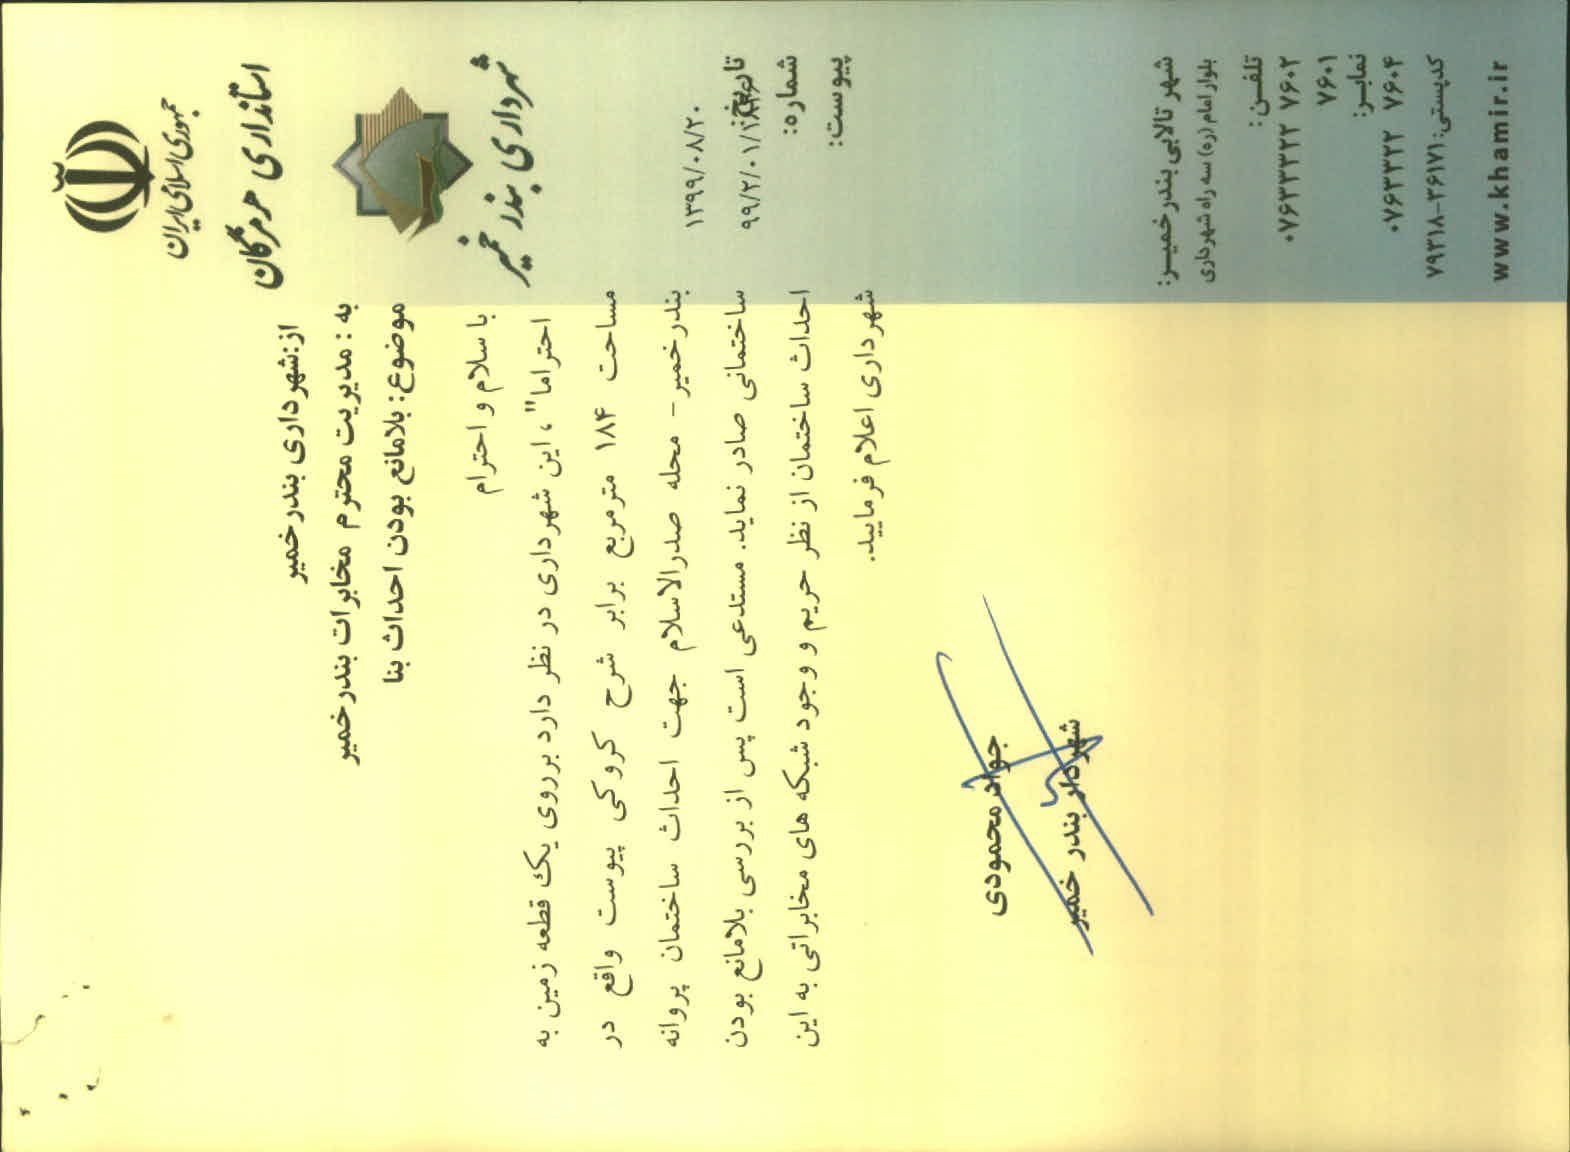 جمهوری اسلامی ایران
استانداری هرمزگان
شهرداری بندر خمیر
۱۳۹۹/۰۸/۲۰
تاریخ:
شماره:
پیوست:
از:شهرداری بندرخمیر
به : مدیریت محترم مخابرات بندرخمیر
موضوع: بلامانع بودن احداث بنا
با سلام و احترام
احتراما" ، این شهرداری در نظر دارد برروی یک قطعه زمین به
مساحت ۱۸۴ مترمربع برابر شرح کروکی پیوست واقع در
بندرخمیر- محله صدرالاسلام جهت احداث ساختمان پروانه
ساختمانی صادر نماید. مستدعی است پس از بررسی بلامانع بودن
احداث ساختمان از نظر حریم و وجود شبکه های مخابراتی به این
شهرداری اعلام فرمایید.
جواد محمودی
شهردار بندر خمیر
شهر تالابی بندرخمیـر:
بلوار امام (ره) سه راه شهرداری
تلفـن:
۰۷۶۳۳۳۲۲ ۷۶۰۲
۷۶۰۱
نمابـر:
۰۷۶۳۳۳۲۲ ۷۶۰۴
کدپستی: ۳۶۱۷۱-۷۹۳۱۸
www.khamir.ir